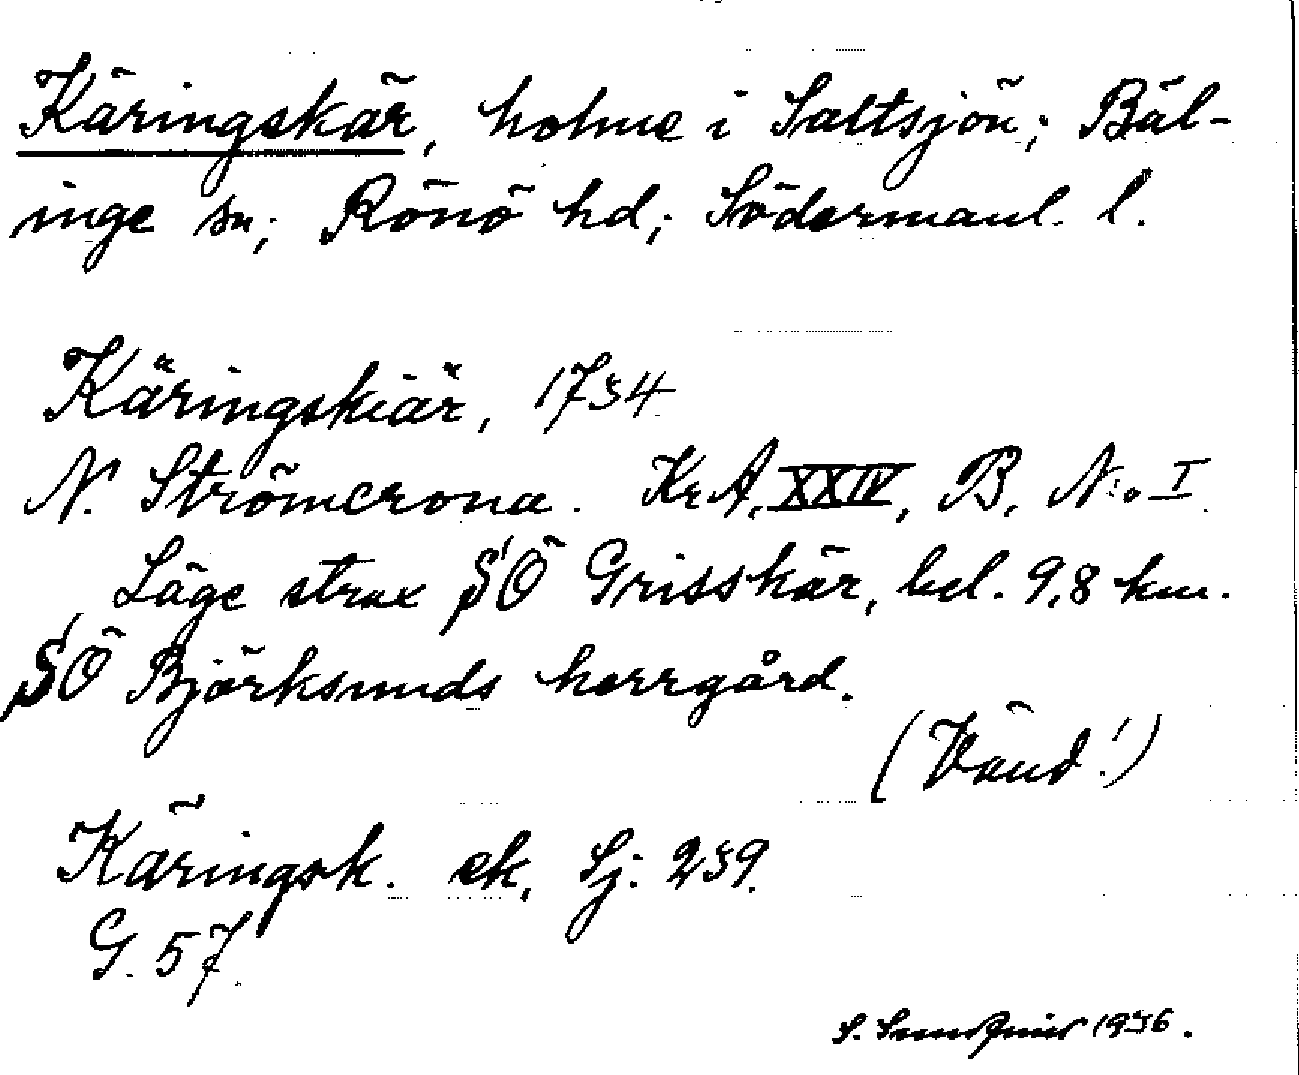 Käringskär, holme i Saltsjön; Bäl-
inge sn; Rönö hd; Södermanl. l.
Käringskiär, 1734
N. Strömcrona. Kr A, XXIV, B, N:o I
Läge strax SÖ Grisskär, bel. 9,8 km.
SÖ Björksunds herrgård.
(Vänd!)
Käringsk. ek, Sj. 239.
G. 57.
S. 1936.